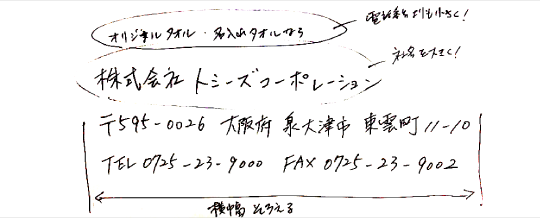 電話番号よりも小さく!
オリジナルタオル・名入れタオルなら
社名を大きく!
株式会社トミーズコーポレーション
〒595-0026 大阪府泉大津市東雲町11-10
TEL 0725-23-9000 FAX 0725-23-9002
横幅そろえる